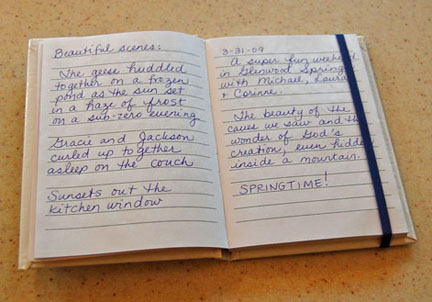 Beautiful scenes:
The geese huddled
together on a frozen
pond as the sun set
in a haze of frost
on a sub-zero evening
Gracie and Jackson
curled up together
asleep on the couch
Sunsets out the
kitchen window
3-31-09
A super fun
in Glenwood Spring
with Michael, Laura
+ Corinne.
The beauty of the
caves we saw and the
wonder of God's
creation, even
inside a mountain.
SPRINGTIME!